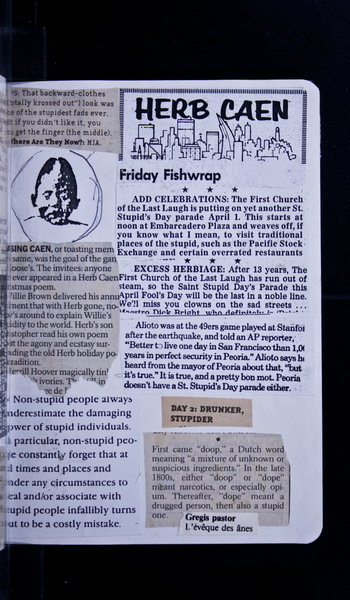 PS: That backward-clothes
totally krossed out") look was
e of the stupidest fads ever.
if you didn't like it, you
s get the finger (the middle).
here Are They Now?: MIA.
SING CAEN, or toasting mem
same, was the goal of the gan
oose's. The invitees: anyone
ever appeared in a Herb Caen
istmas poem.
Willie Brown delivered his annu
ment that with Herb gone, no
w's around to explain Willie's
dity to the world. Herb's son
stopher read his own poem
t the agony and ecstasy sur-
nding the old Herb holiday po-
radition.
errill Hoover magically tin
ivories.
Non-stupid people always
nderestimate the damaging
ower of stupid individuals.
particular, non-stupid peo-
le constantly forget that at
l times and places and
nder any circumstances to
eal and/or associate with
tupid people infallibly turns
ut to be a costly mistake.
HERB CAEN
Friday Fishwrap
ADD CELEBRATIONS: The First Church
of the Last Laugh is putting on yet another St.
Stupid's Day parade April 1. This starts at
noon at Embarcadero Plaza and weaves off, if
you know what I mean, to visit traditional
places of the stupid, such as the Pacific Stock
Exchange and certain overrated restaurants
EXCESS HERBIAGE: After 13 years, The
First Church of the Last Laugh has run out of
steam, so the Saint Stupid Day's Parade this
April Fool's Day will be the last in a noble line.
We'll miss you clowns on the sad streets . . .
Maestro Dick Bright, who definitely is
Alioto was at the 49ers game played at Stanfor
after the earthquake, and told an AP reporter,
"Better to live one day in San Francisco than 1,0
years in perfect security in Peoria." Alioto says h
heard from the mayor of Peoria about that, "but
it's true." It is true, and a pretty bon mot. Peoria
doesn't have a St. Stupid's Day parade either.
DAY 2: DRUNKER,
STUPIDER
First came "doop," a Dutch word
meaning "a mixture of unknown or
suspicious ingredients." In the late
1800s, either "doop" or "dope"
meant narcotics, or especially opi-
um. Thereafter, "dope" meant a
drugged person, then also a stupid
one.
Gregis pastor
L'évêque des ânes